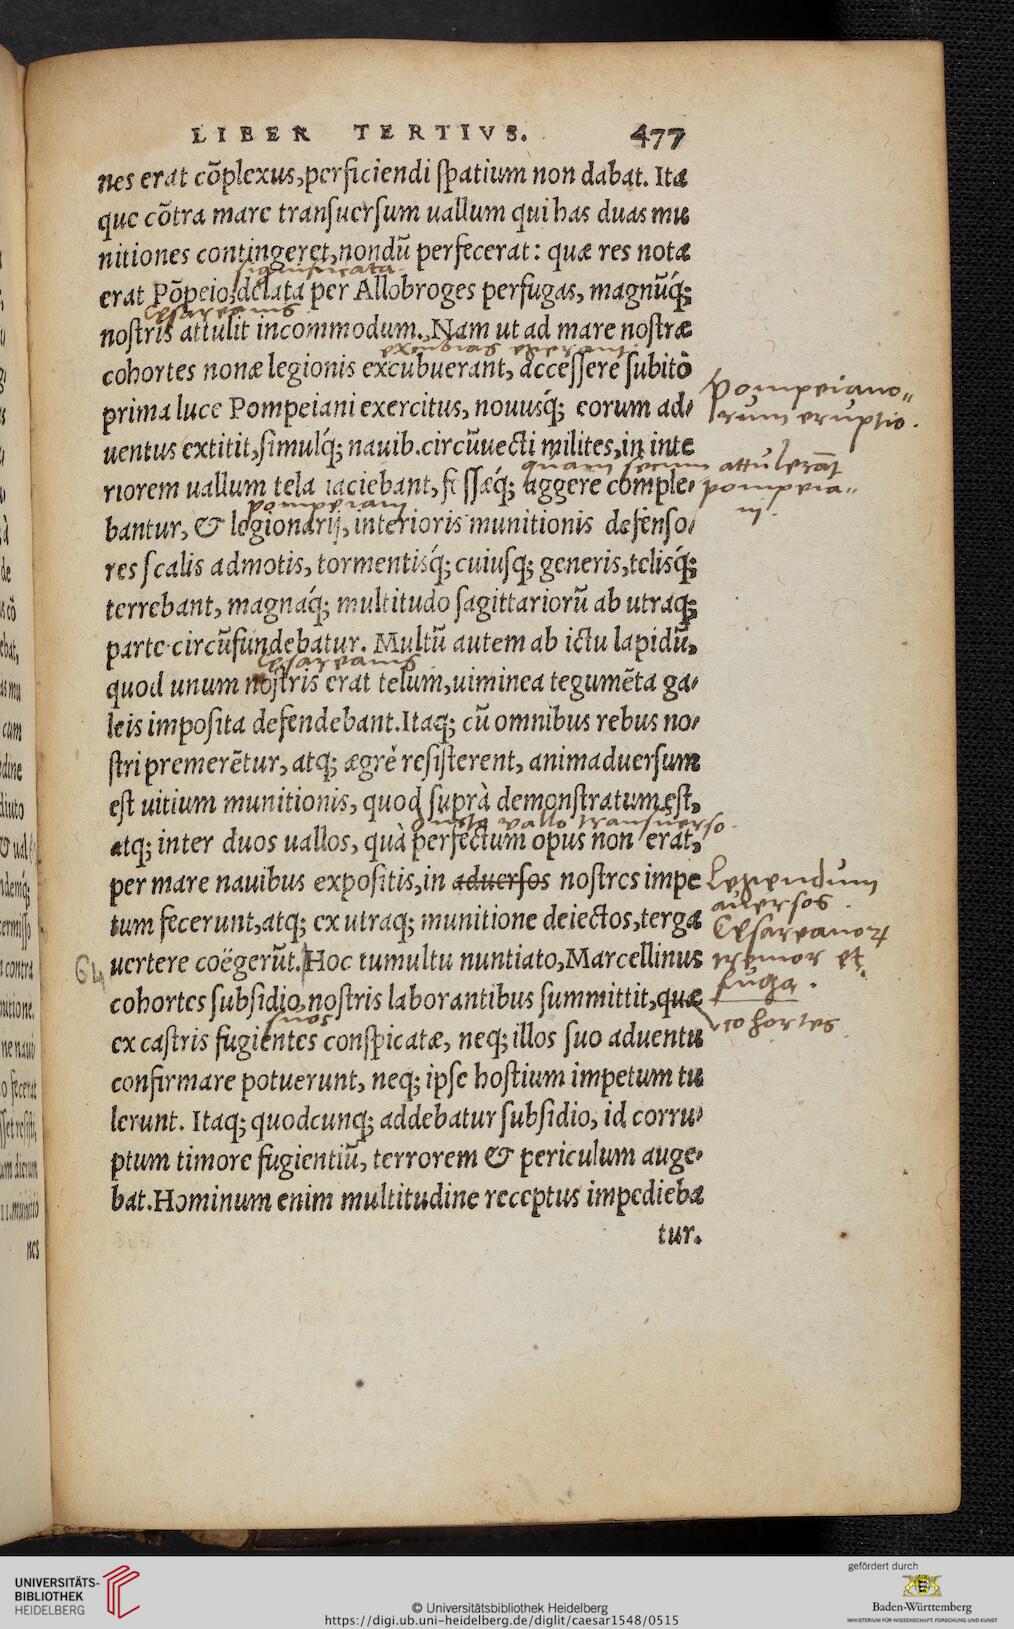 LIBER TERTIVS. 477
nes erat cõplexus, perficiendi spatium non dabat. Ita
que cõtra mare transuersum uallum qui has duas mu
nitiones contingeret, nondũ perfecerat: quæ res nota
significata.
erat Põpeio, delata per Allobroges perfugas, magnũq́;
Cesareanis
nostris attulit incommodum. Nam ut ad mare nostræ
excubias egerant
cohortes nonæ legionis excubuerant, accessere subitò
prima luce Pompeiani exercitus, nouusq́; eorum ad-
Pompeiano-
rum eruptio.
uentus extitit, simulq́; nauib. circũuecti milites, in inte
quam secum attulerãt
riorem uallum tela iaciebant, fossæq́; aggere comple-
pompeia-
ni.
pompeiani
bantur, & legionarij, interioris munitionis defenso-
res scalis admotis, tormentisq́; cuiusq; generis, telisq́;
terrebant, magnaq́; multitudo sagittariorũ ab utraq;
parte circũfundebatur. Multũ autem ab ictu lapidũ,
Cesareanis
quod unum nostris erat telum, uiminea tegumẽta ga-
leis imposita defendebant. Itaq; cũ omnibus rebus no-
stri premerẽtur, atq; ægrè resisterent, animaduersum
est uitium munitionis, quod suprà demonstratum est,
vallo transuerso.
atq; inter duos uallos, quà perfectum opus non erat,
per mare nauibus expositis, in aduersos nostros impe
Legendum
auersos.
tum fecerunt, atq; ex utraq; munitione deiectos, terga
Cesareanoꝝ
64 uertere coëgerũt. Hoc tumultu nuntiato, Marcellinus
tremor et
fuga.
cohortes subsidio nostris laborantibus summittit, quæ
cohortes
suos
ex castris fugientes conspicatæ, neq; illos suo aduentu
confirmare potuerunt, neq; ipse hostium impetum tu
lerunt. Itaq; quodcunq; addebatur subsidio, id corru-
ptum timore fugientiũ, terrorem & periculum auge-
bat. Hominum enim multitudine receptus impedieba
tur.
nes
UNIVERSITÄTS-
BIBLIOTHEK
HEIDELBERG
© Universitätsbibliothek Heidelberg
https://digi.ub.uni-heidelberg.de/diglit/caesar1548/0515
gefördert durch
Baden-Württemberg
MINISTERIUM FÜR WISSENSCHAFT, FORSCHUNG UND KUNST